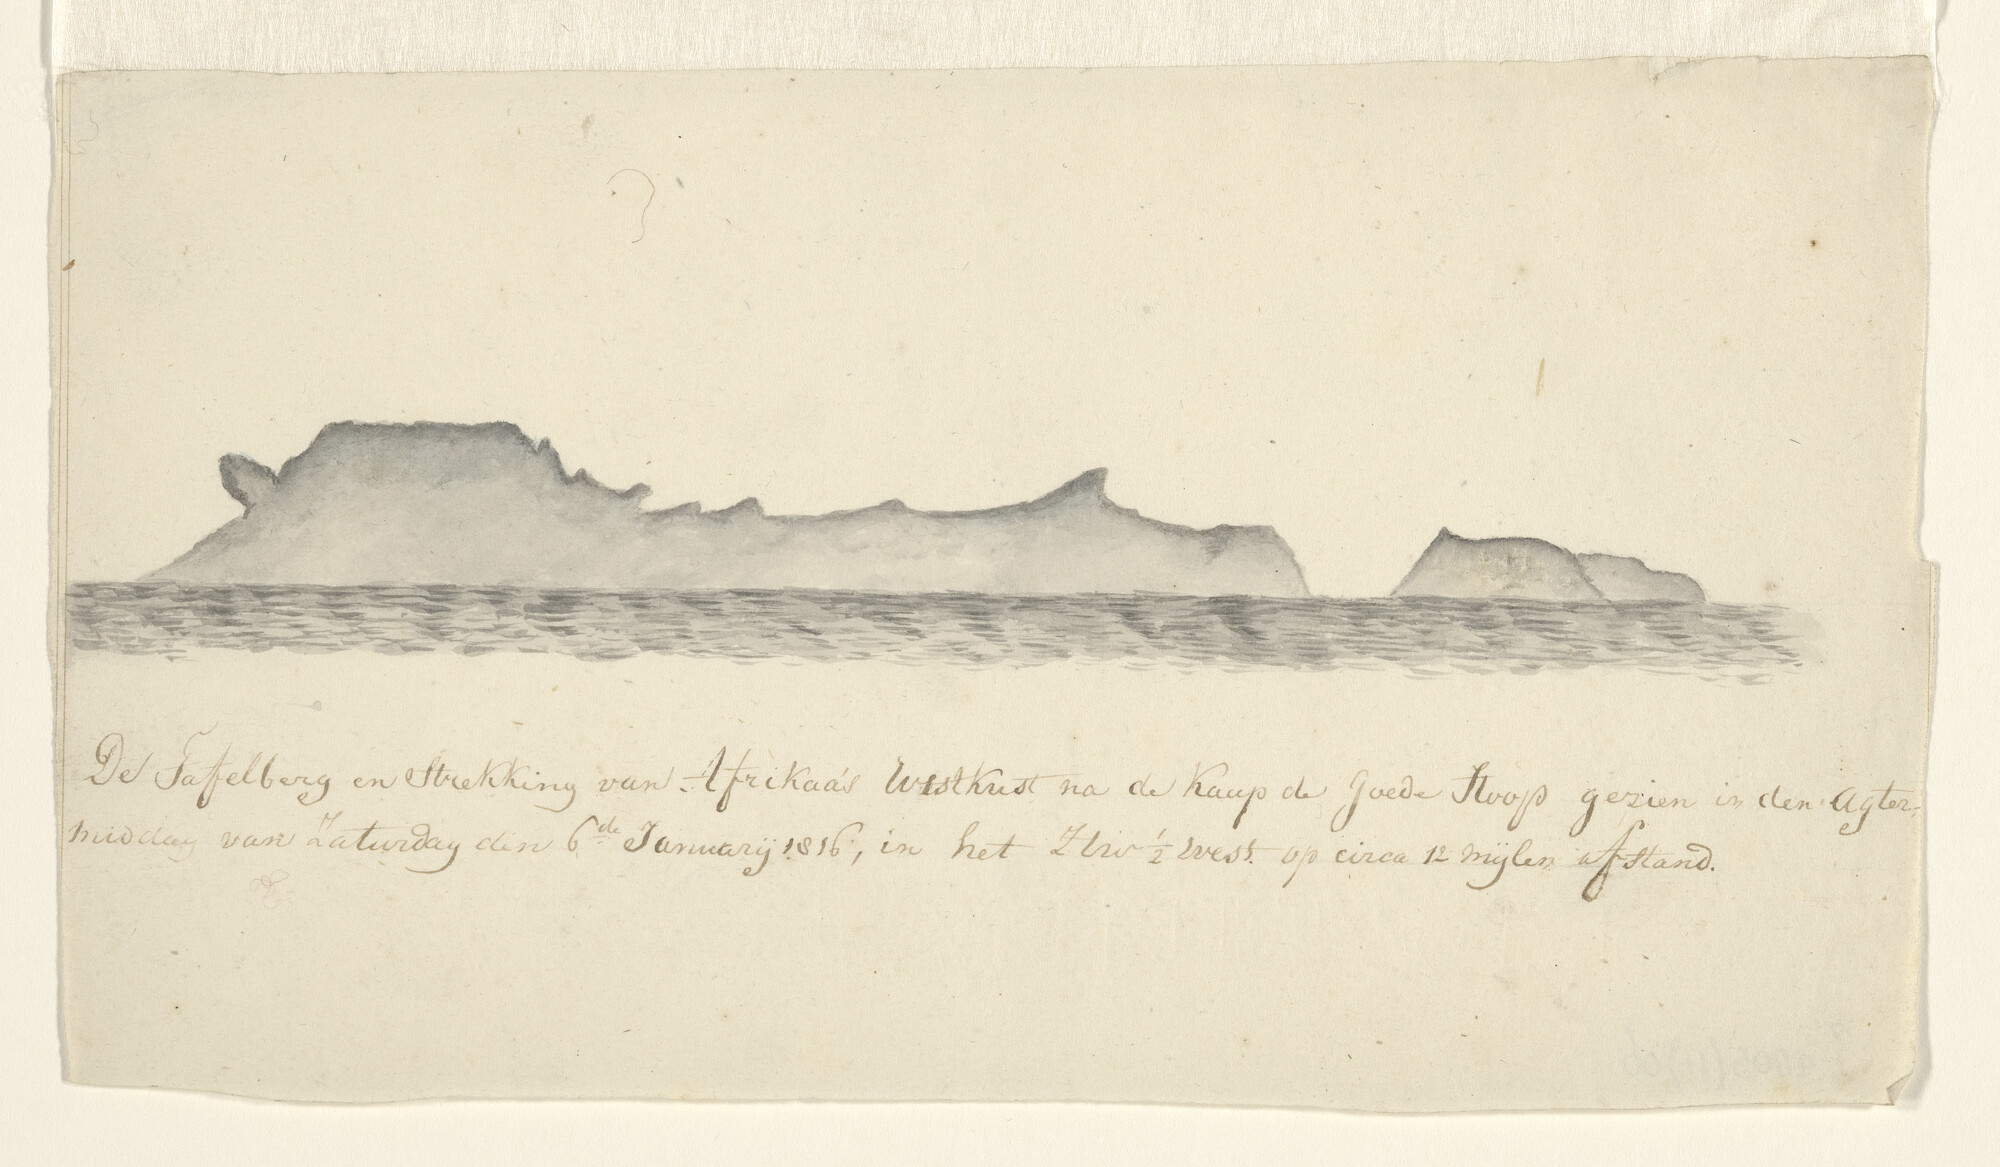 De Taffelberg en Strekking van Afrikaa's Westkust na de Kaap de Goede Hoop gezien in den Agter-
middag van Zaturdag den 6de Januarij 1816, in het ZW ½ West. op circa 12 mijlen afstand.